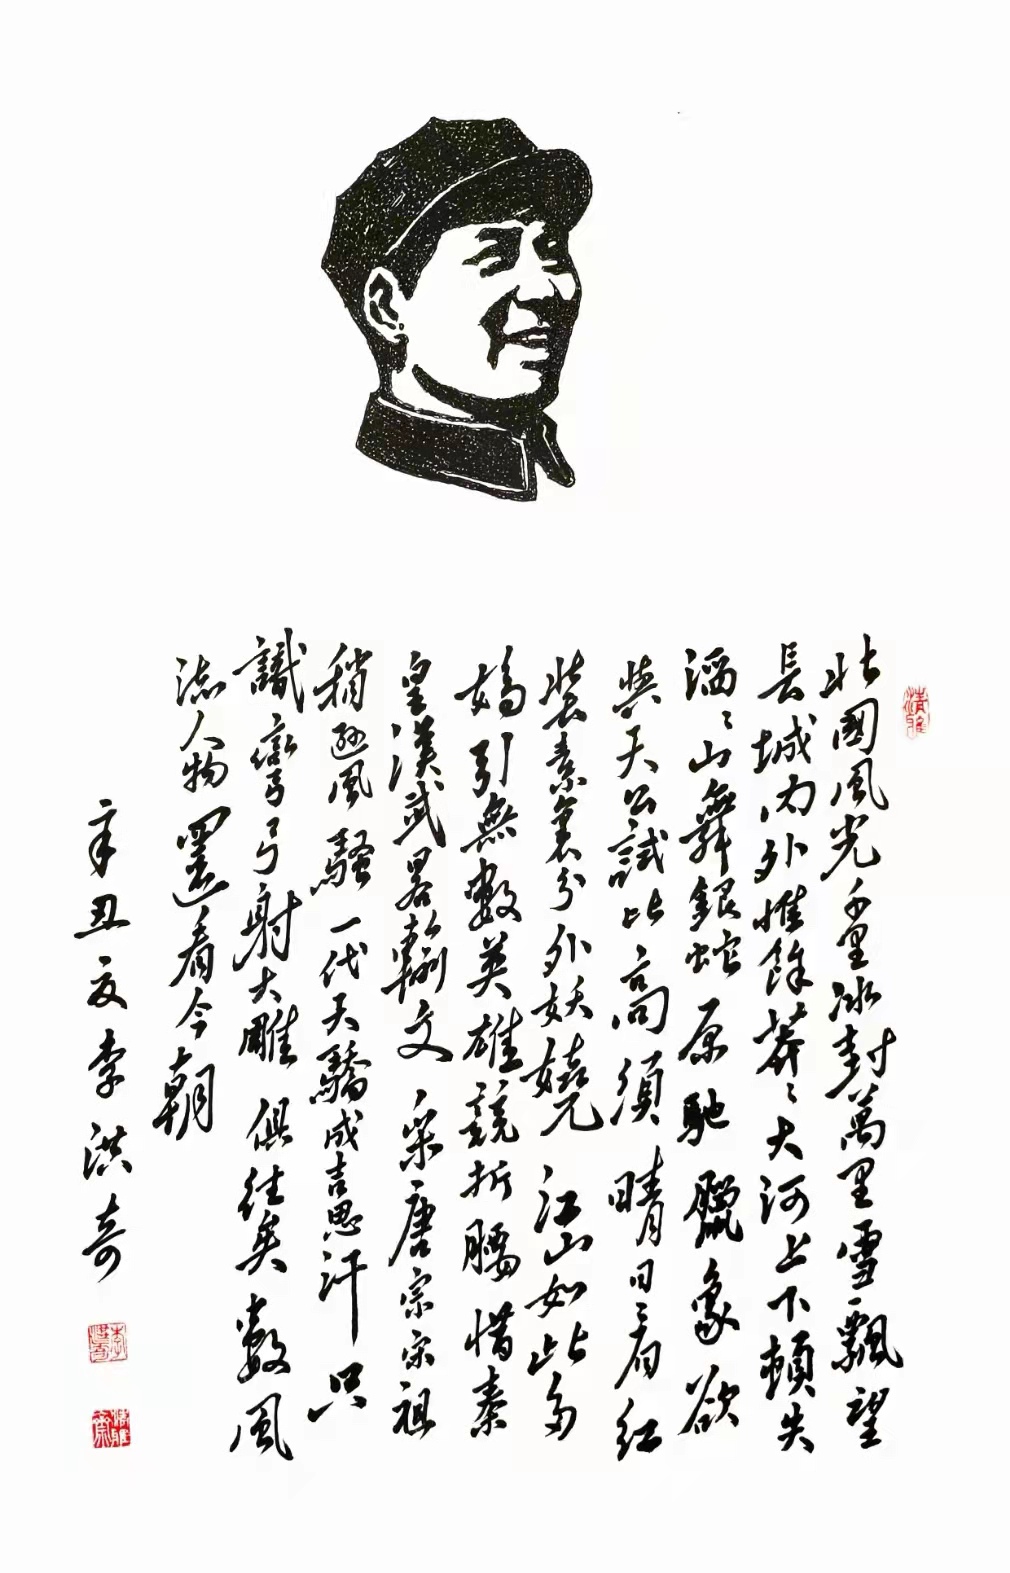 清雅
北國風光千里冰封萬里雪飄望
長城内外惟餘莽〻大河上下頓失
滔〻山舞銀蛇原馳臘象欲
與天公試比高須晴日看紅
裝素裹分外妖嬈江山如此多
嬌引無數英雄競折腰惜秦
皇漢武畧輸文采唐宗宋祖
稍遜風騷一代天驕成吉思汗只
識彎弓射大雕俱往矣數風
流人物還看今朝
辛丑夏李洪奇
李洪奇
清雅齋